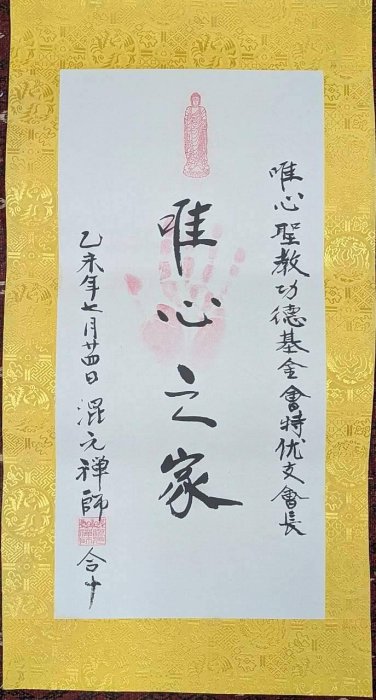 唯心聖教功德基金會特优文會長
唯心之家
乙未年七月廿四日 混元禪師 合十